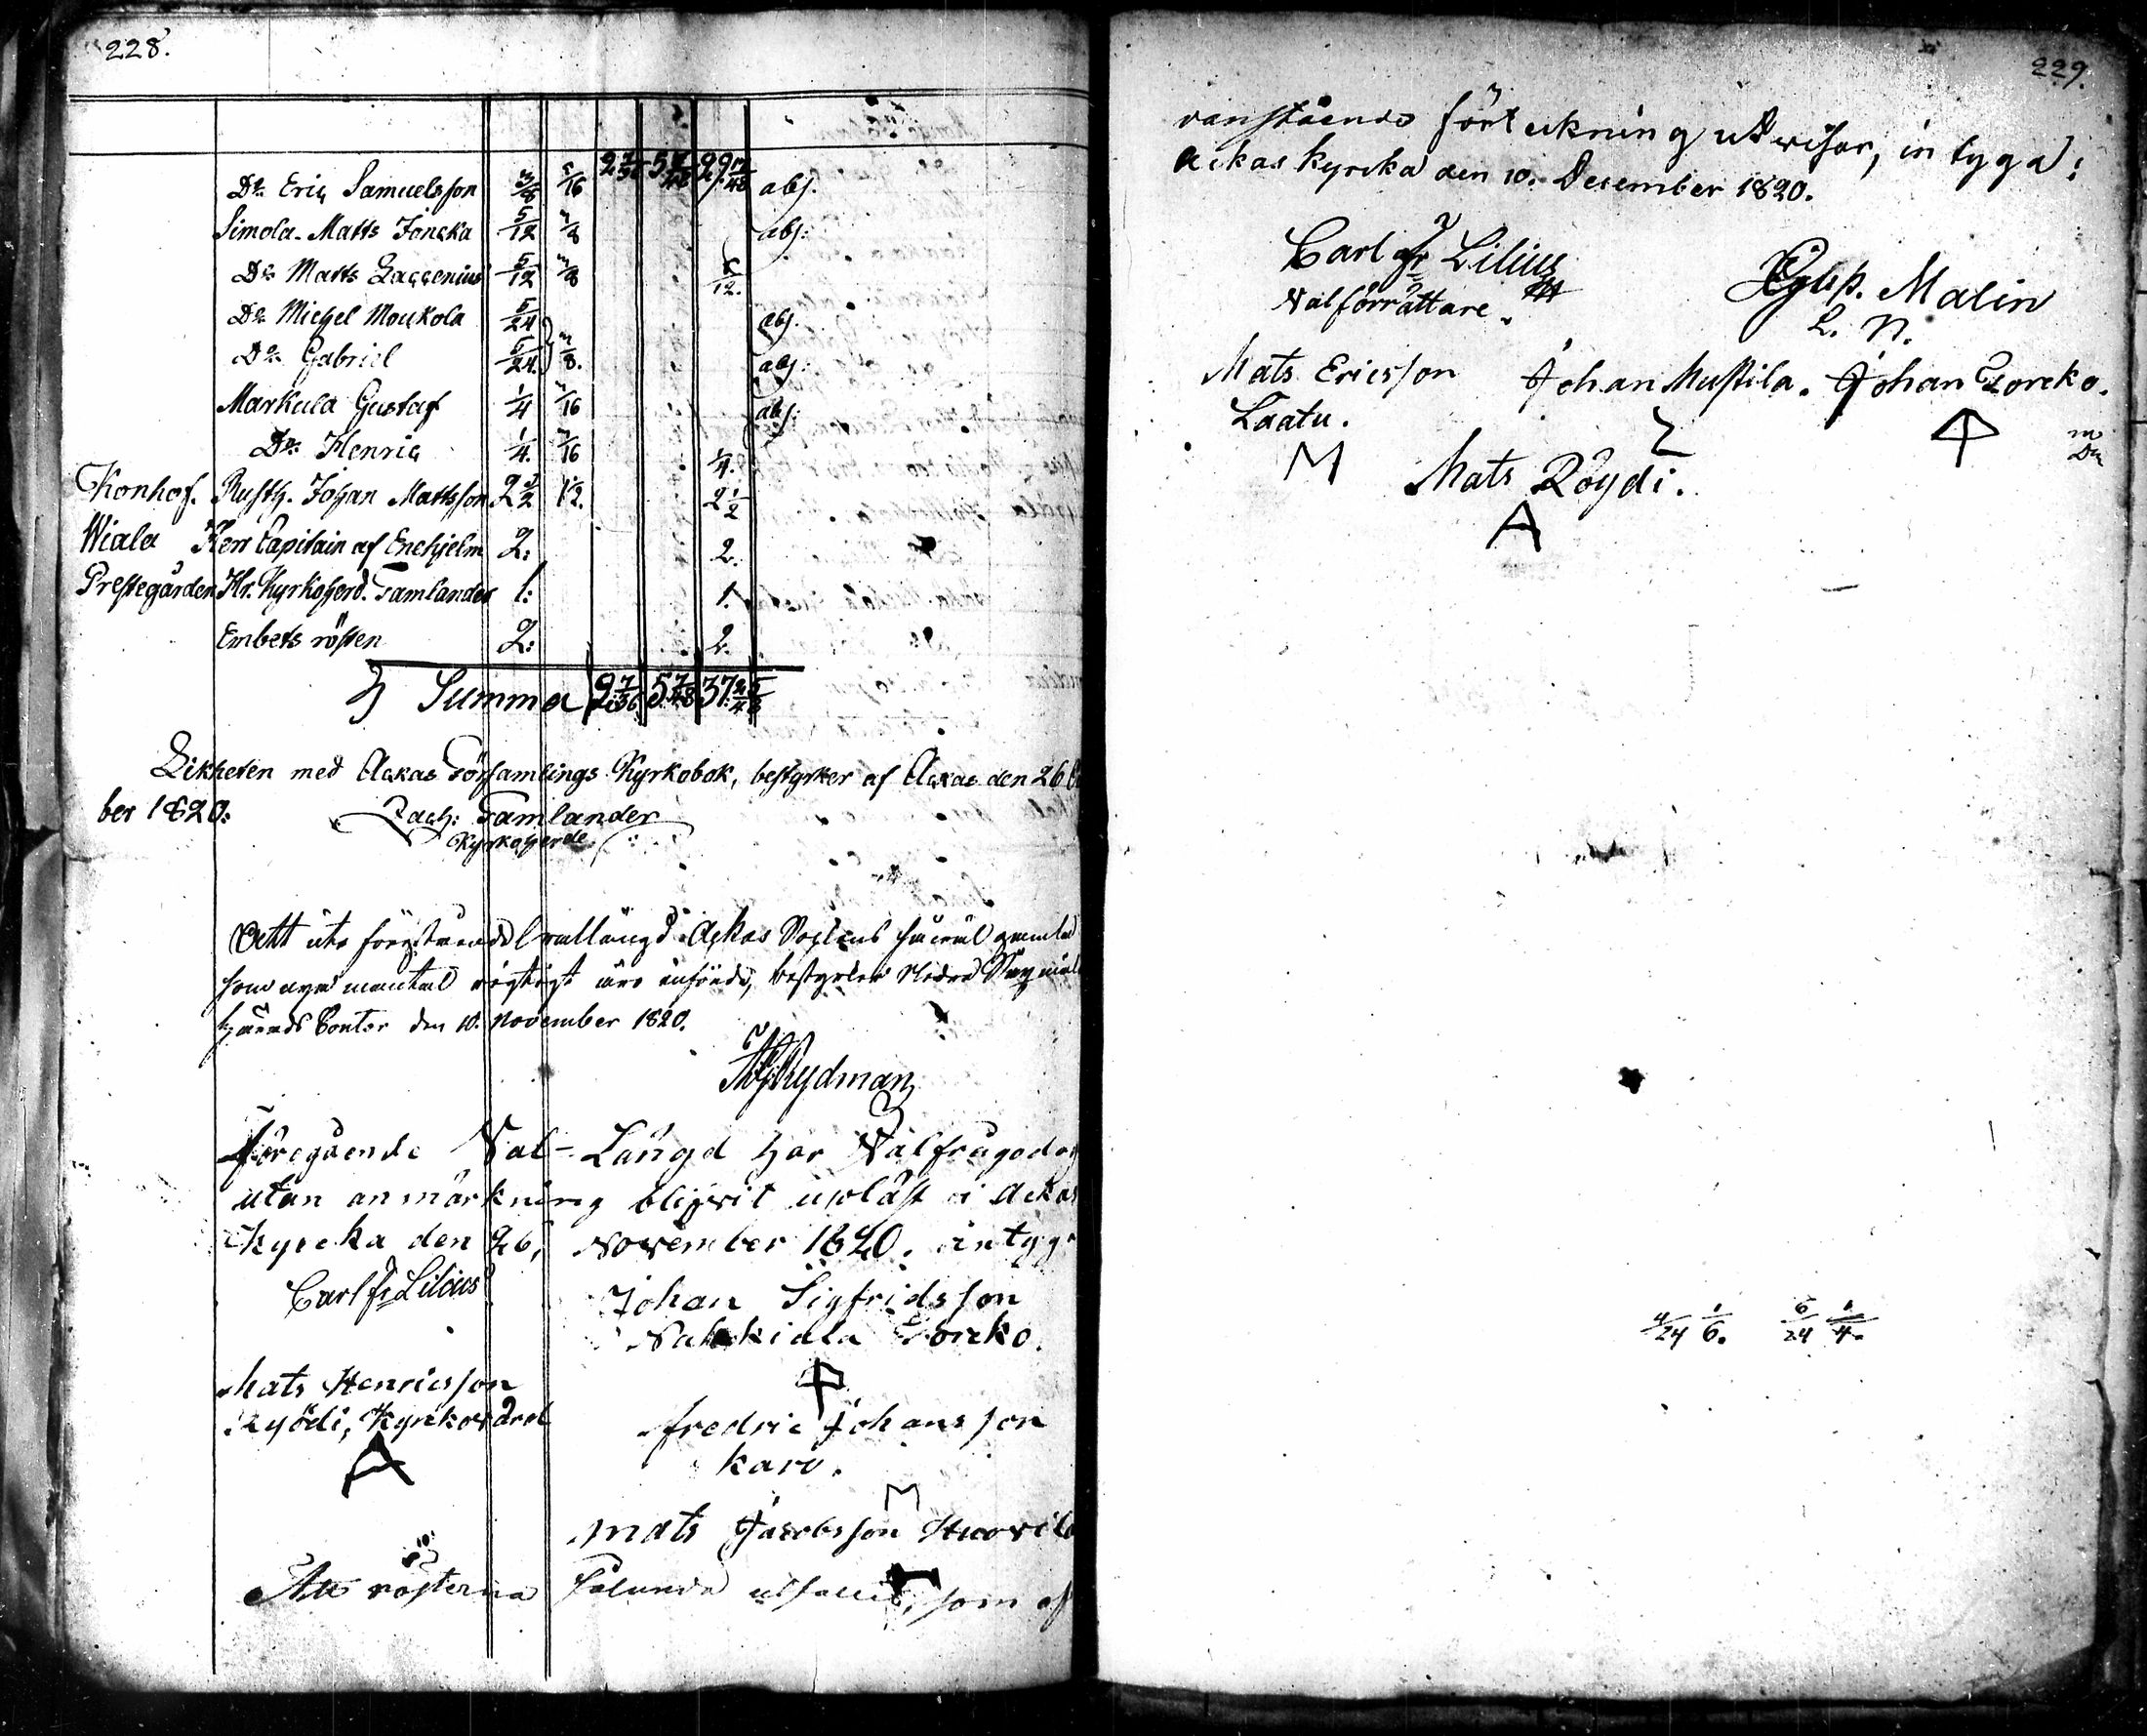 228.
2 7/36 5 7/48 29 17/48
Do Eric Samuelsson 3/8 5/16 abs.
Simola Matts Jöns ka 5/12 3/8 abs.
Do Matts Laggenius 5/12 3/8 5/12.
Do Michel Moukola 5/24 abs.
Do Gabriel 5/24. 3/8. abs.
Markula Gustaf 1/4 3/16 abs.
Do Henric 1/4. 3/16 1/4.
Konhof. Rusth. Johan Mattsson 2 1/2 1 1/2. 2 1/2
Wiala Herr Capitain af Enehjelm 2: 2.
Prestegården Hr. Kyrkoherd. Tamlander 1: 1.
Embets rösten 2: 2.
Summa 2 7/36 5 7/48 37
Likheten med Ackas Församlings Kyrkobok, bestyrker af Ackas den 26
ber 1820:
Zach: Tamlander
Kyrkoherde
Att uti förestående vallängd Ackas Soknens såväl gamla
som nya mantal rigtigt äro införde, bestyrker Nedre
Härads Contor den 10. November 1820.
Rydman
Föregående Val-Längd har Valfrågodag
utan anmärkning blifvit upläst i Ackas
Kyrcka den 26, November 1820. intyga
Carl Fr Lilius
Johan Sigfridsson
Nahkiala Zorcko.
Mats Henricsson
Ryödi, Kyrkovärd
A
Fredric Johansson
Karo.
M
Mats Jacobsson Huovila
Att rösterna sålunda utfallit, som af
229.
vanstående förteckning utvisar, intyga:
Ackas Kyrcka den 10. December 1820.
Carl Fr Lilius
Valförrättare.
Malin
L. N.
Mats Ericsson Johan Mustila. Johan Zorcko.
Laatu.
M
Mats Röydi.
A
4/24 1/6. 6/24 1/4.